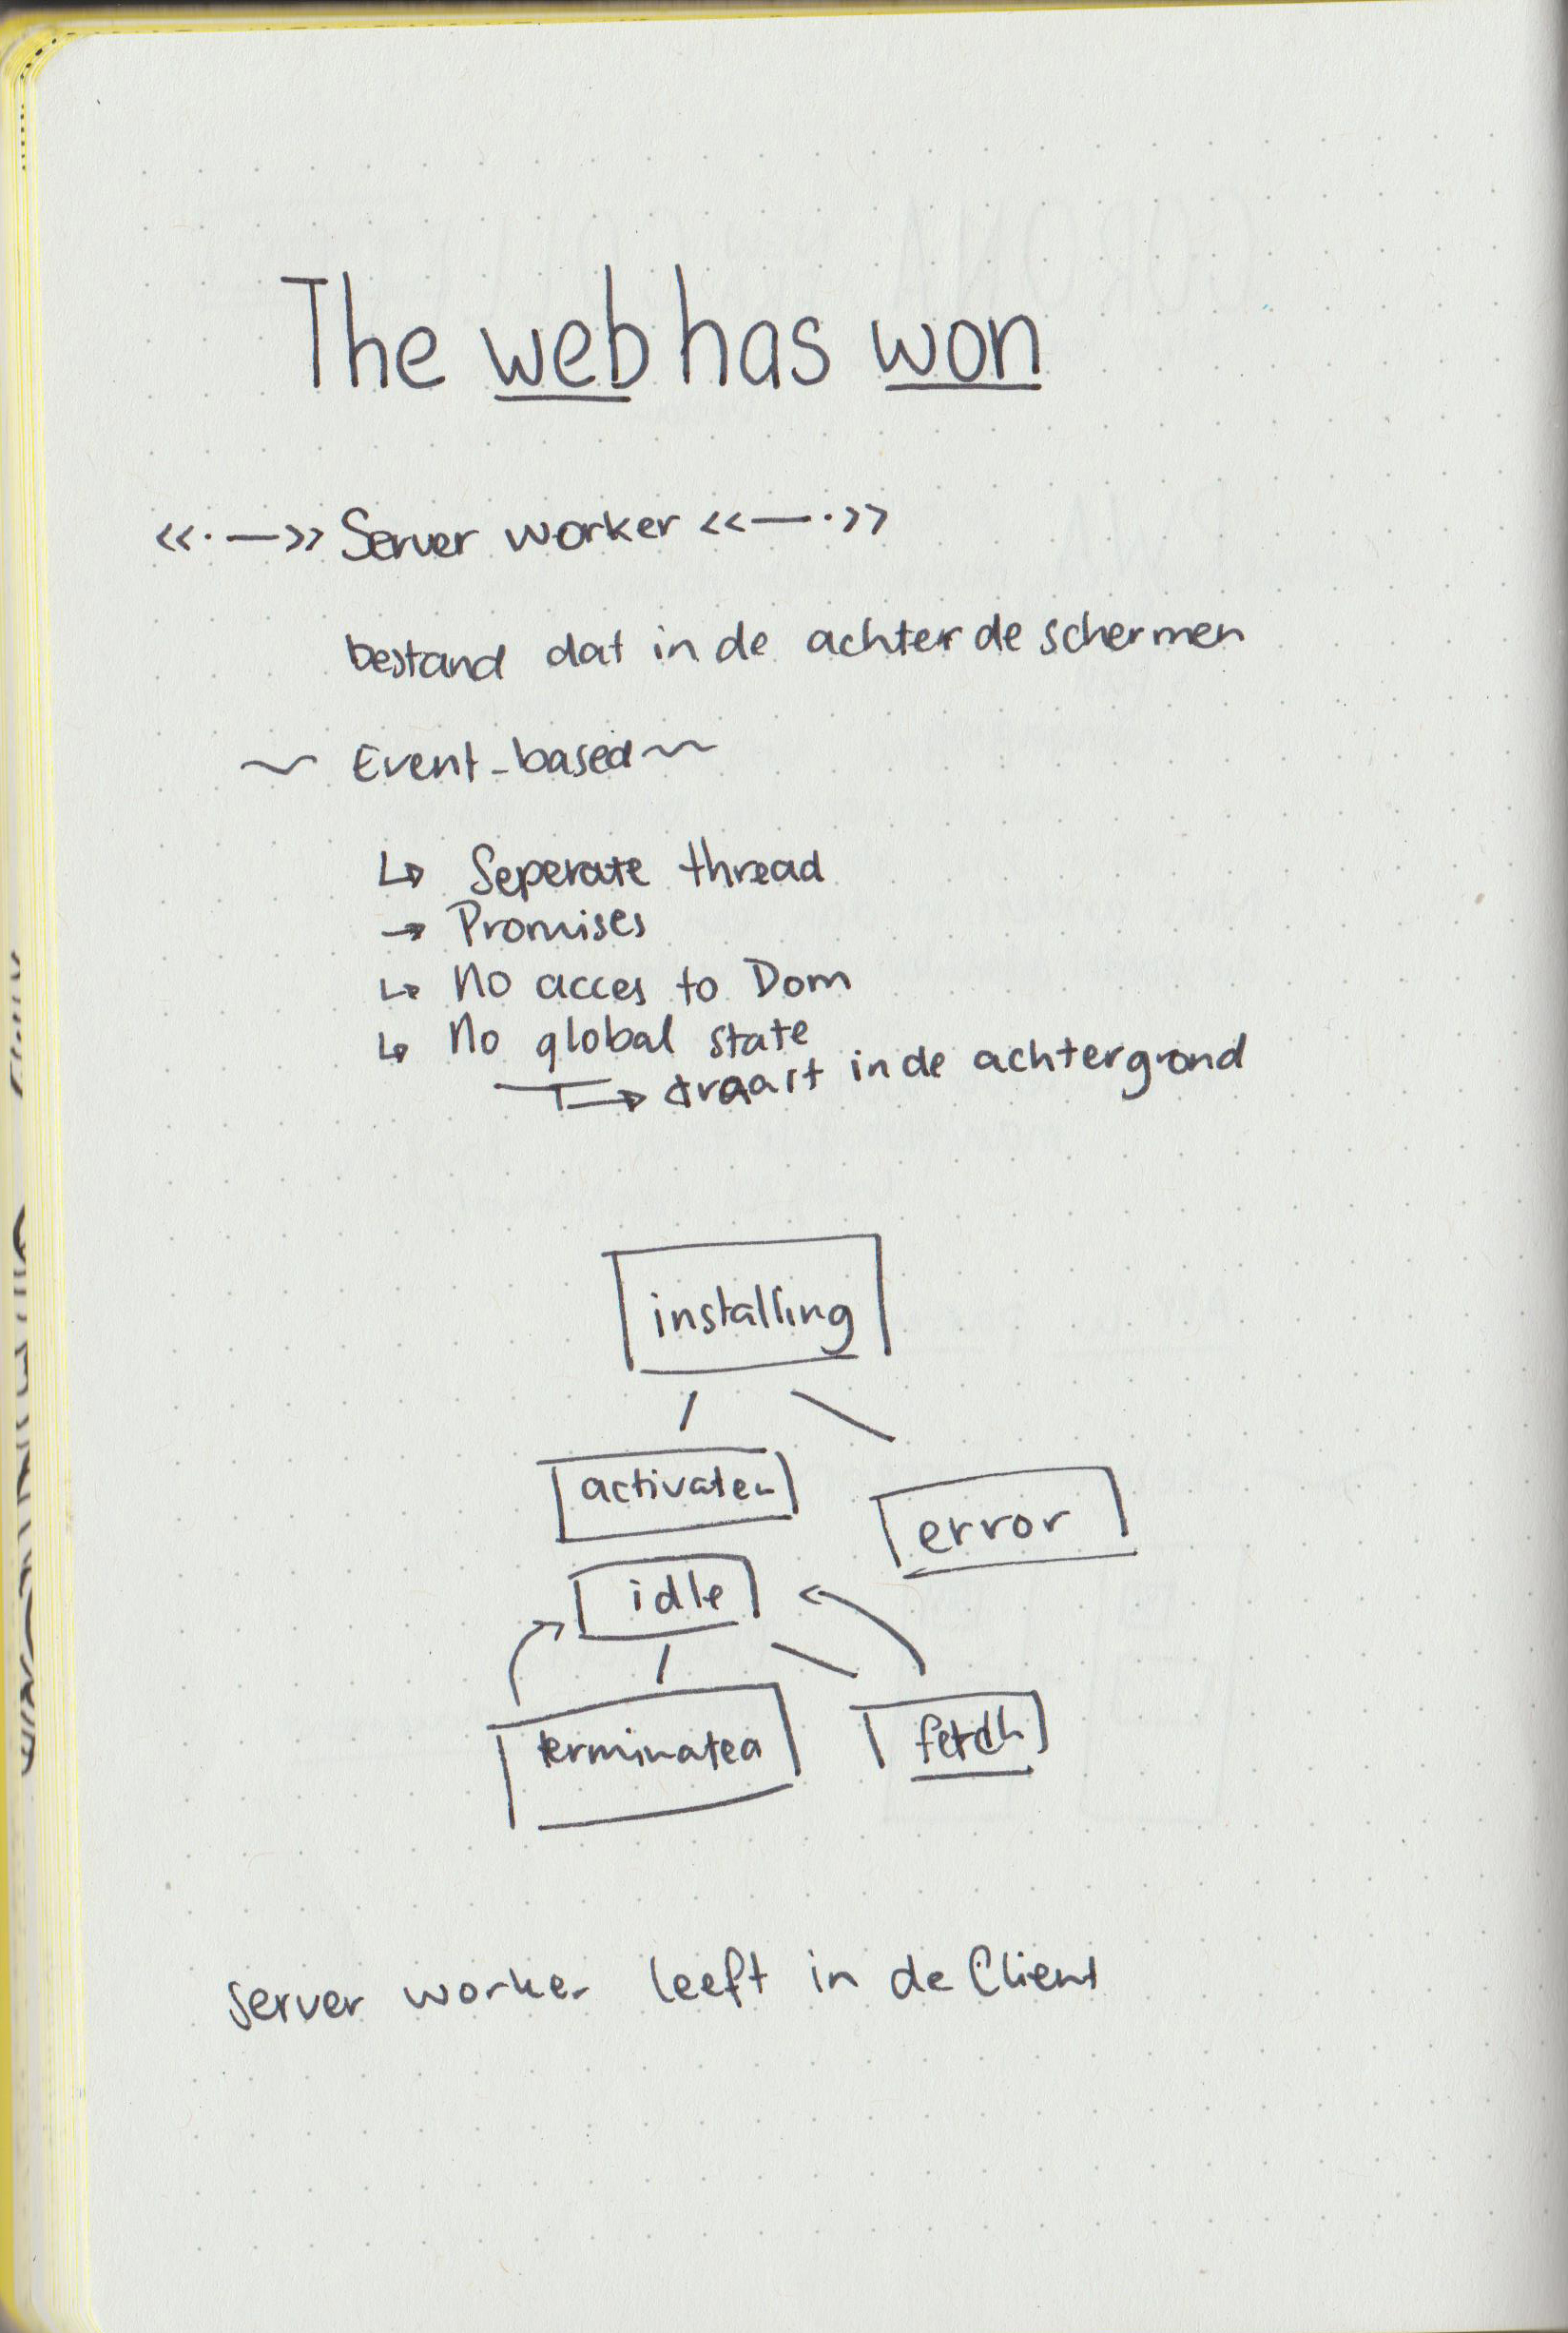 The web has won
<<·—>> Server worker <<—·>>
bestand dat in de achter de schermen
~ Event-based ~
↳ Seperate thread
→ Promises
↳ No acces to Dom
↳ No global state
↳ draait in de achtergrond
installing
activaten
error
idle
terminated
fetch
server worker leeft in de Client